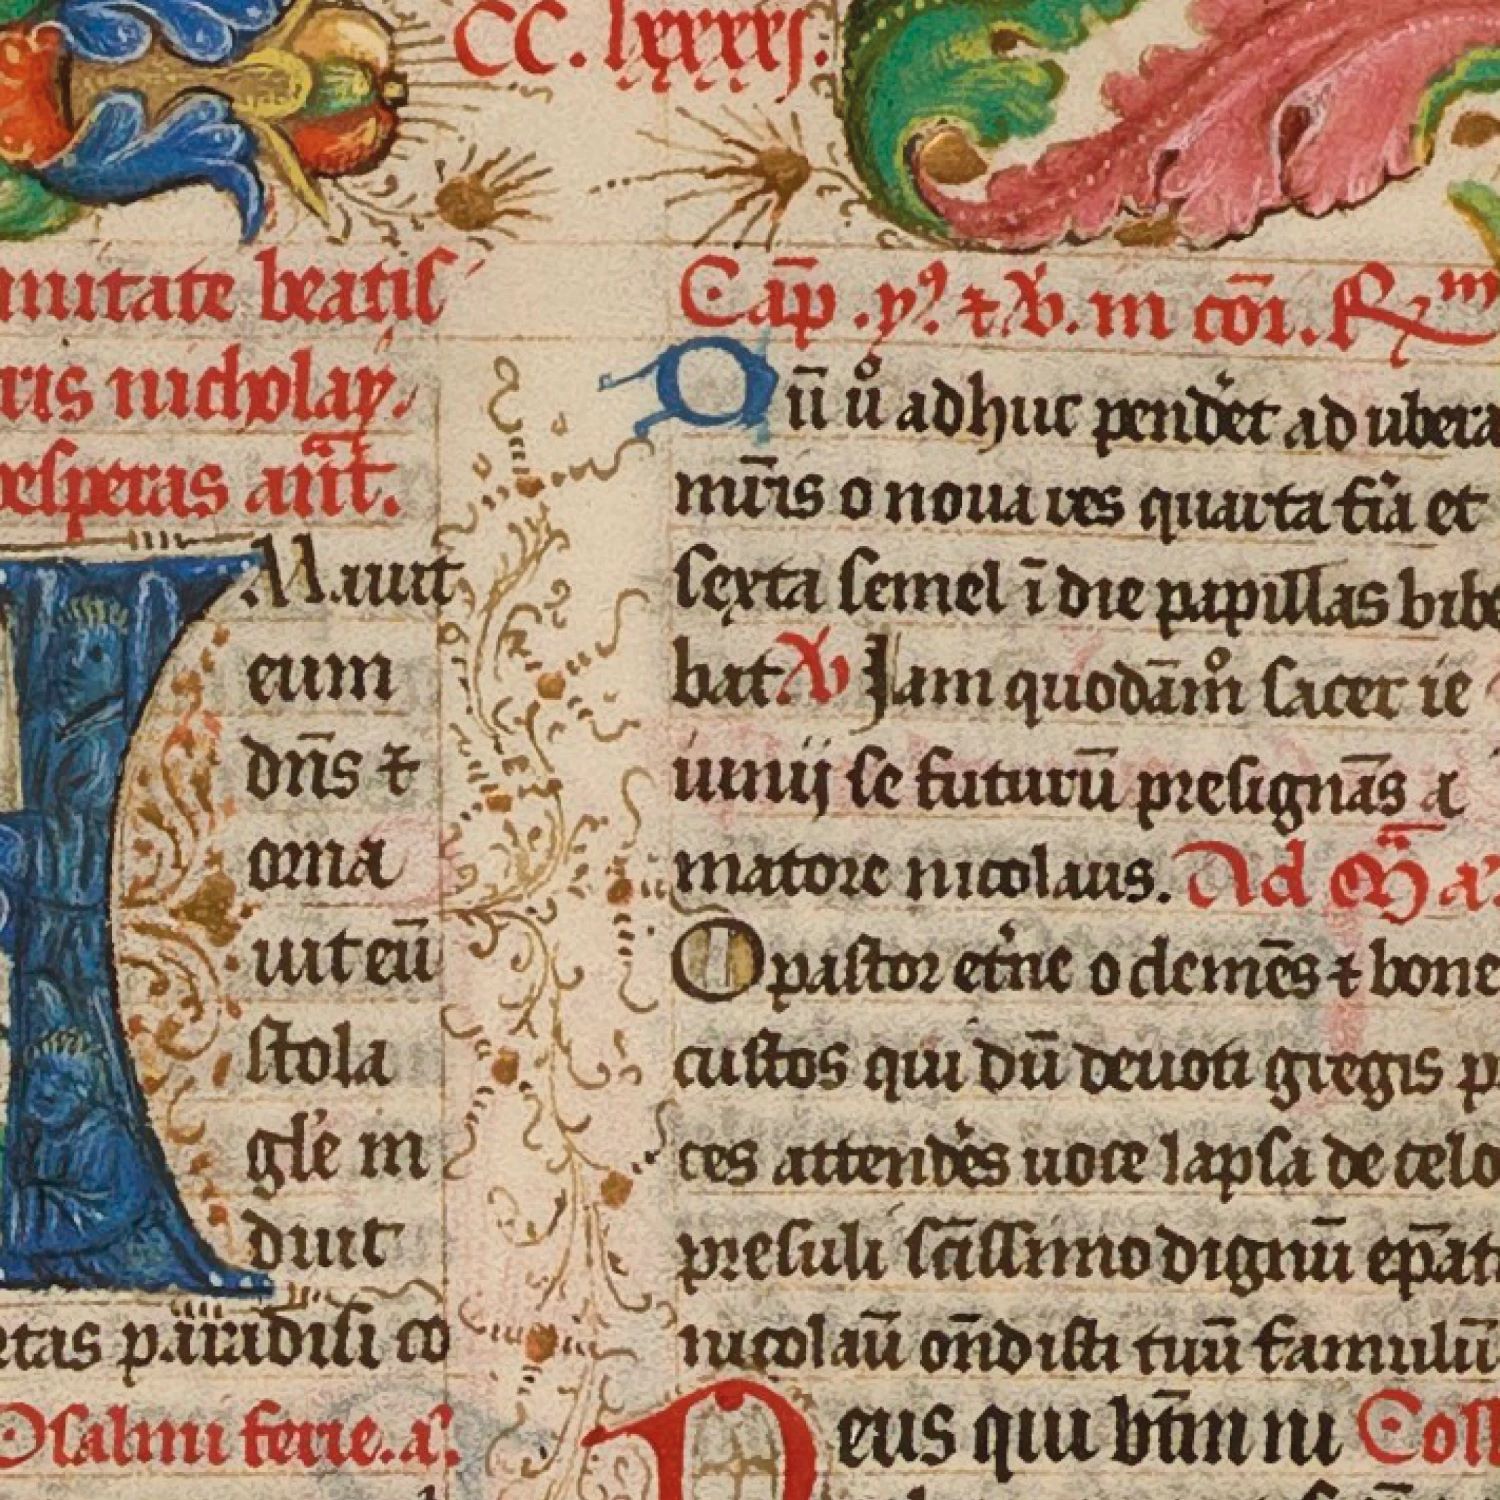 CC. lxxxxj.
nuitate beatiſ
ris nicholay.
veſperas ant̄.
Amuit
eum
dn̄s ⁊
orna
uit eū
ſtola
gl'e in
duit
etas paradiſi co
Pſalmi ferie. a'.
Cap̄. y⁹. ⁊ V̸. in cōi. R̸ᵐ
Qūi ů adhuc pend'et ad ubera
mr̄is o noua res quarta fi'a et
ſexta ſemel ī die papillas bibe
bat. V̸ Jam quodām̊ ſacer ie
iunij ſe futurū preſignās a
matore nicolaus. Ad M̄ a'
O paſtor et'ne o clemēs ⁊ bone
cuſtos qui dū deuoti gregis p
ces attendēs uoce lapſa de celo
preſuli ſc̄iſſimo dignū ep̄at
nicolaū on̄diſti tuū famulū
Deus qui bt̄m ni Coll